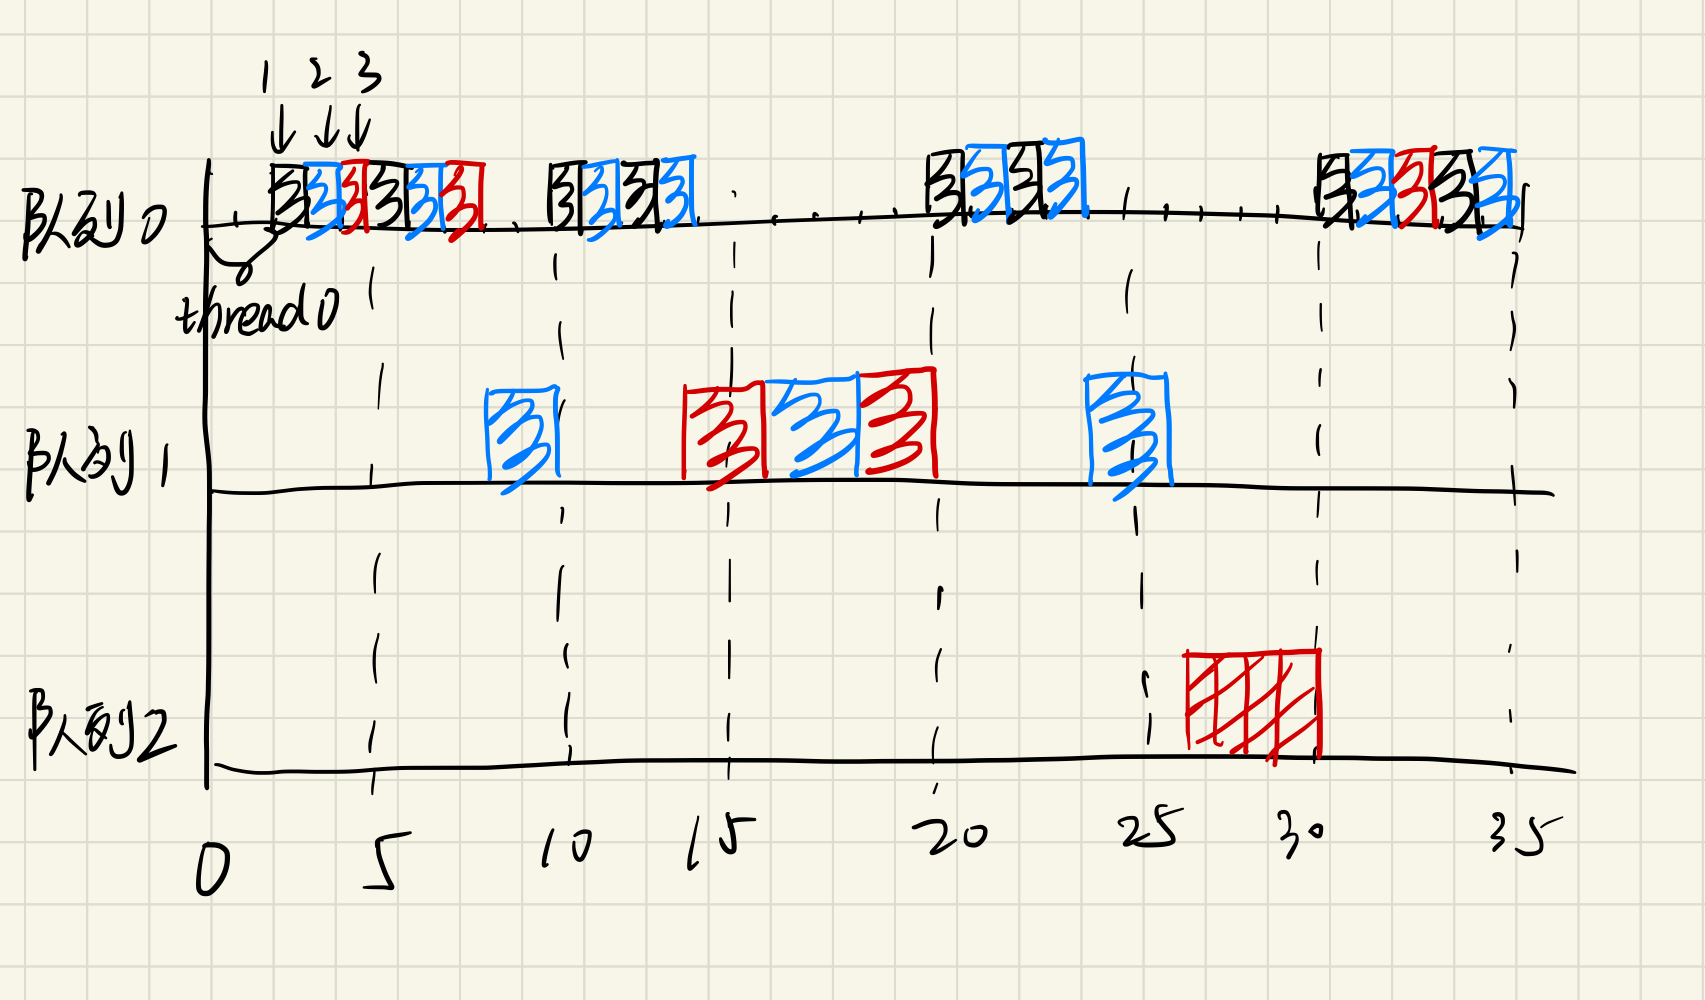 1 2 3
队列0
thread0
队列1
队列2
0 5 10 15 20 25 30 35